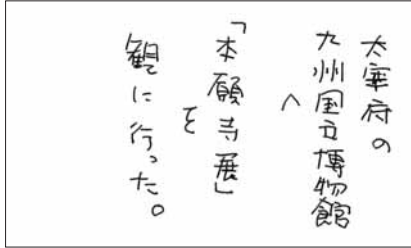 太宰府の
九州国立博物館
へ
「本願寺展」
を
観に行った。